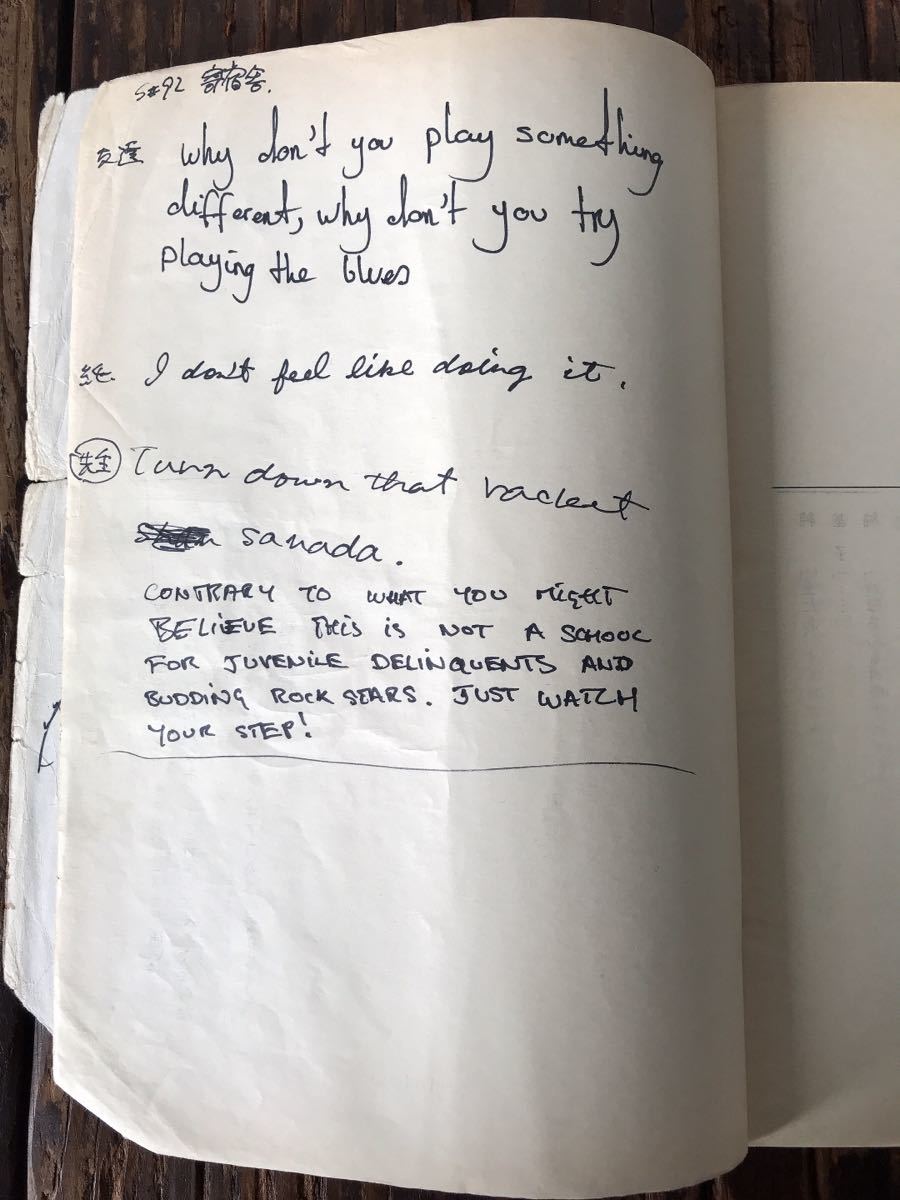 S#92 寄宿舎.
友達 why don't you play something
different, why don't you try
playing the blues
I don't feel like doing it.
先生 Turn down that racket
sanada.
CONTRARY TO WHAT YOU MIGHT
BELIEVE THIS IS NOT A SCHOOL
FOR JUVENILE DELINQUENTS AND
BUDDING ROCK STARS. JUST WATCH
YOUR STEP!